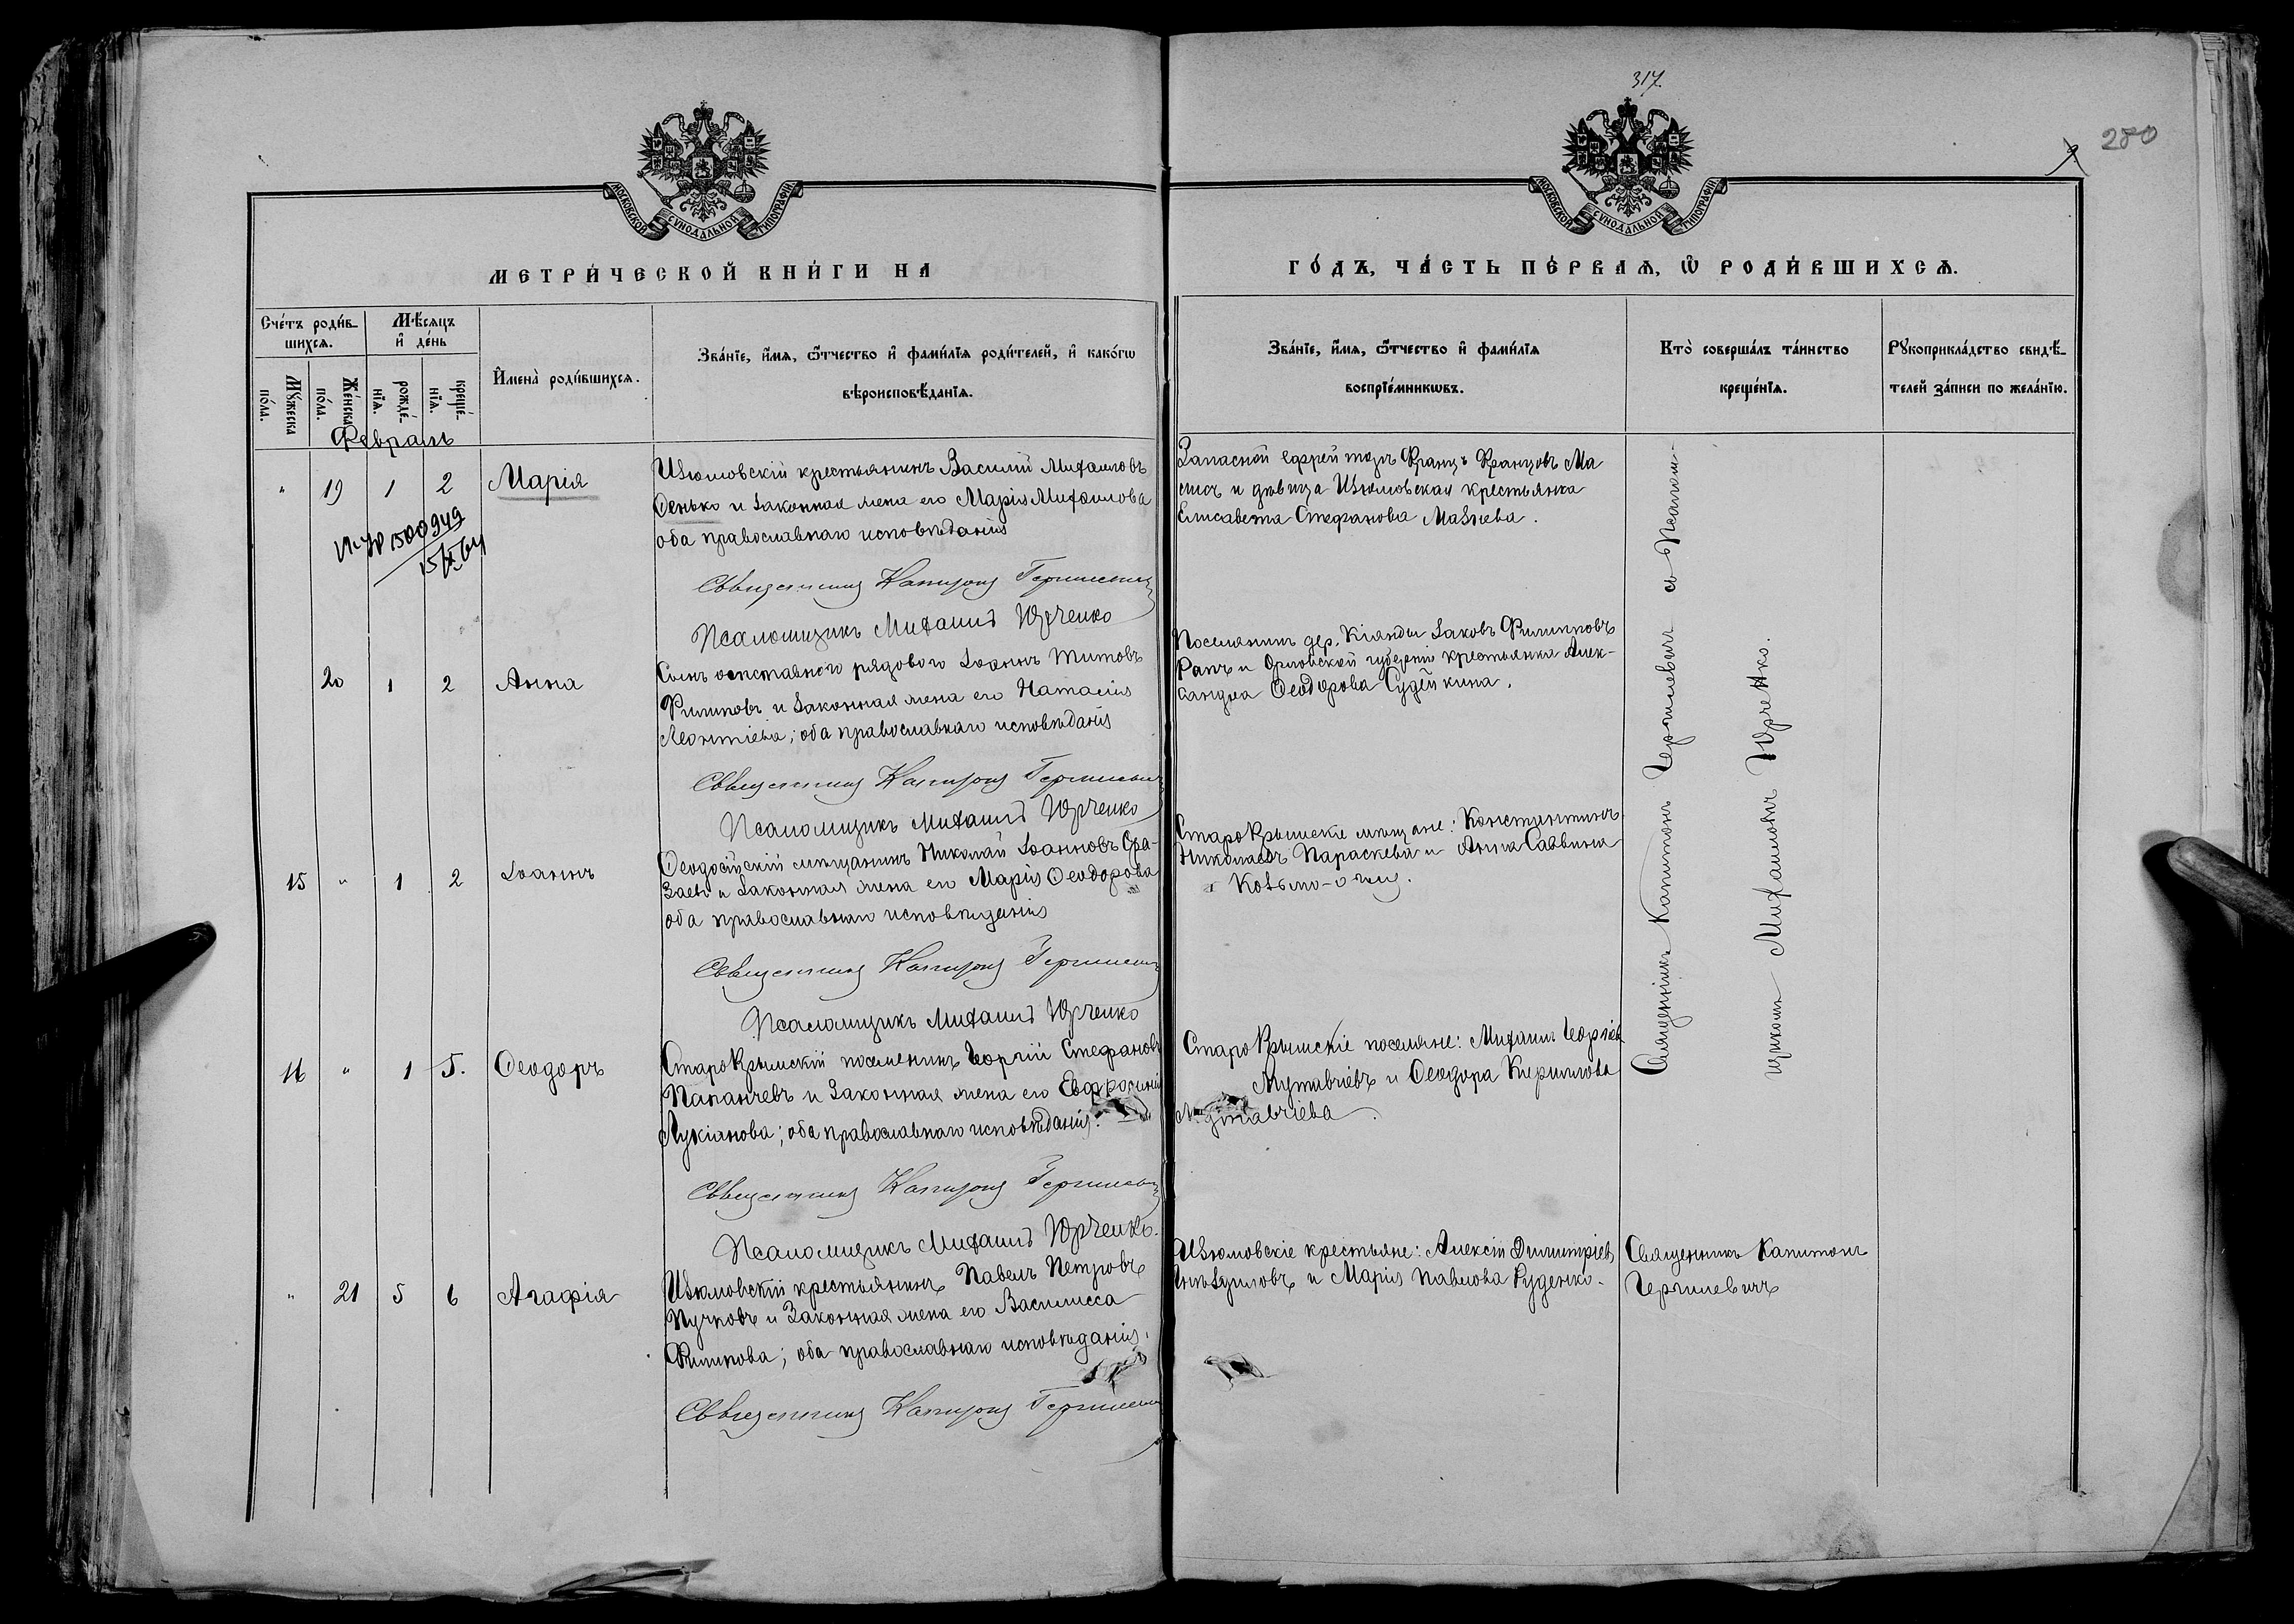 317.
280
МОСКОВСКОЙ СѴНОДАЛЬНОЙ ТИПОГРАФІИ
МОСКОВСКОЙ СѴНОДАЛЬНОЙ ТИПОГРАФІИ
МЕТРИ́ЧЕСКОЙ КНИ́ГИ НА
ГО́ДЪ, ЧА́СТЬ ПЕ́РВАѦ, Ѿ РОДИ́ВШИХСѦ.
Сче́тъ роди́в-
шихсѧ.
Мѣ́сѧцъ
и҆ де́нь
Мꙋ́жеска
по́ла.
Же́нска
по́ла.
рожде́-
нїѧ.
креще́-
нїѧ.
И҆мена̀ роди́вшихсѧ.
Зва́нїе, и҆́мѧ, ѻ҆́тчество и҆ фами́лїѧ роди́телей, и҆ како́гѡ
вѣроисповѣ́данїѧ.
Зва́нїе, и҆́мѧ, ѻ҆́тчество и҆ фами́лїѧ
воспрїе́мникѡвъ.
Кто̀ соверша́лъ та́инство
креще́нїѧ.
Рꙋкоприкла́дство свидѣ́-
телей за́писи по жела́нїю.
Февраль
" 19 1 2 Марія
Изюмовскій крестьянинъ Василій Михаиловъ
Ѳенько и законная жена его Марія Михаилова
оба православнаго исповѣданія
1500949
Священникъ Капитонъ Чергилевичъ
Псаломщикъ Михаилъ Юрченко
Запасной ефрейторъ Францъ Францовъ Ма
сич и дѣвица Изюмовская крестьянка
Елисавета Стефанова Мазнева.
20 1 2 Анна
Сынъ отставного рядового Іоаннъ Титовъ
Филиповъ и законная жена его Наталія
Леонтіева; оба православнаго исповѣданія
Священникъ Капитонъ Чергилевичъ
Псаломщикъ Михаилъ Юрченко
Поселянинъ дер. Кіянды Іаковъ Филипповъ
Рапъ и Орловской губерніи крестьянка Алек-
сандра Ѳеодорова Судейкина.
15 " 1 2 Іоаннъ
Ѳеодосійскій мѣщанинъ Николай Іоанновъ Ора-
заевъ и законная жена его Марія Ѳеодорова
оба православнаго исповѣданія
Священникъ Капитонъ Чергилевичъ
Псаломщикъ Михаилъ Юрченко
СтароКрымскіе мѣщане: Константинъ
Николаевъ Параскева и Анна Саввина
Козьмо-оглу.
16 " 1 5. Ѳеодоръ
СтароКрымскій поселенинъ Георгій Стефановъ
Папанчевъ и законная жена его Евфросинія
Лукіянова; оба православнаго исповѣданія.
Священникъ Капитонъ Чергилевичъ
Псаломщикъ Михаилъ Юрченко.
СтароКрымскіе поселяне: Михаилъ Георгіевъ
Мутавчіевъ и Ѳеодора Кириллова
Мутавчіева.
" 21 5 6 Агафія
Изюмовскій крестьянинъ Павелъ Петровъ
Пучковъ и законная жена его Василисса
Филипова; оба православнаго исповѣданія.
Священникъ Капитонъ Чергилевичъ
Изюмовскіе крестьяне: Алексій Димитріевъ
и Марія Павлова Руденко.
Священникъ Капитонъ
Чергилевичъ
Священникъ Капитонъ Чергилевичъ съ Псалом-
щикомъ Михаиломъ Юрченко.